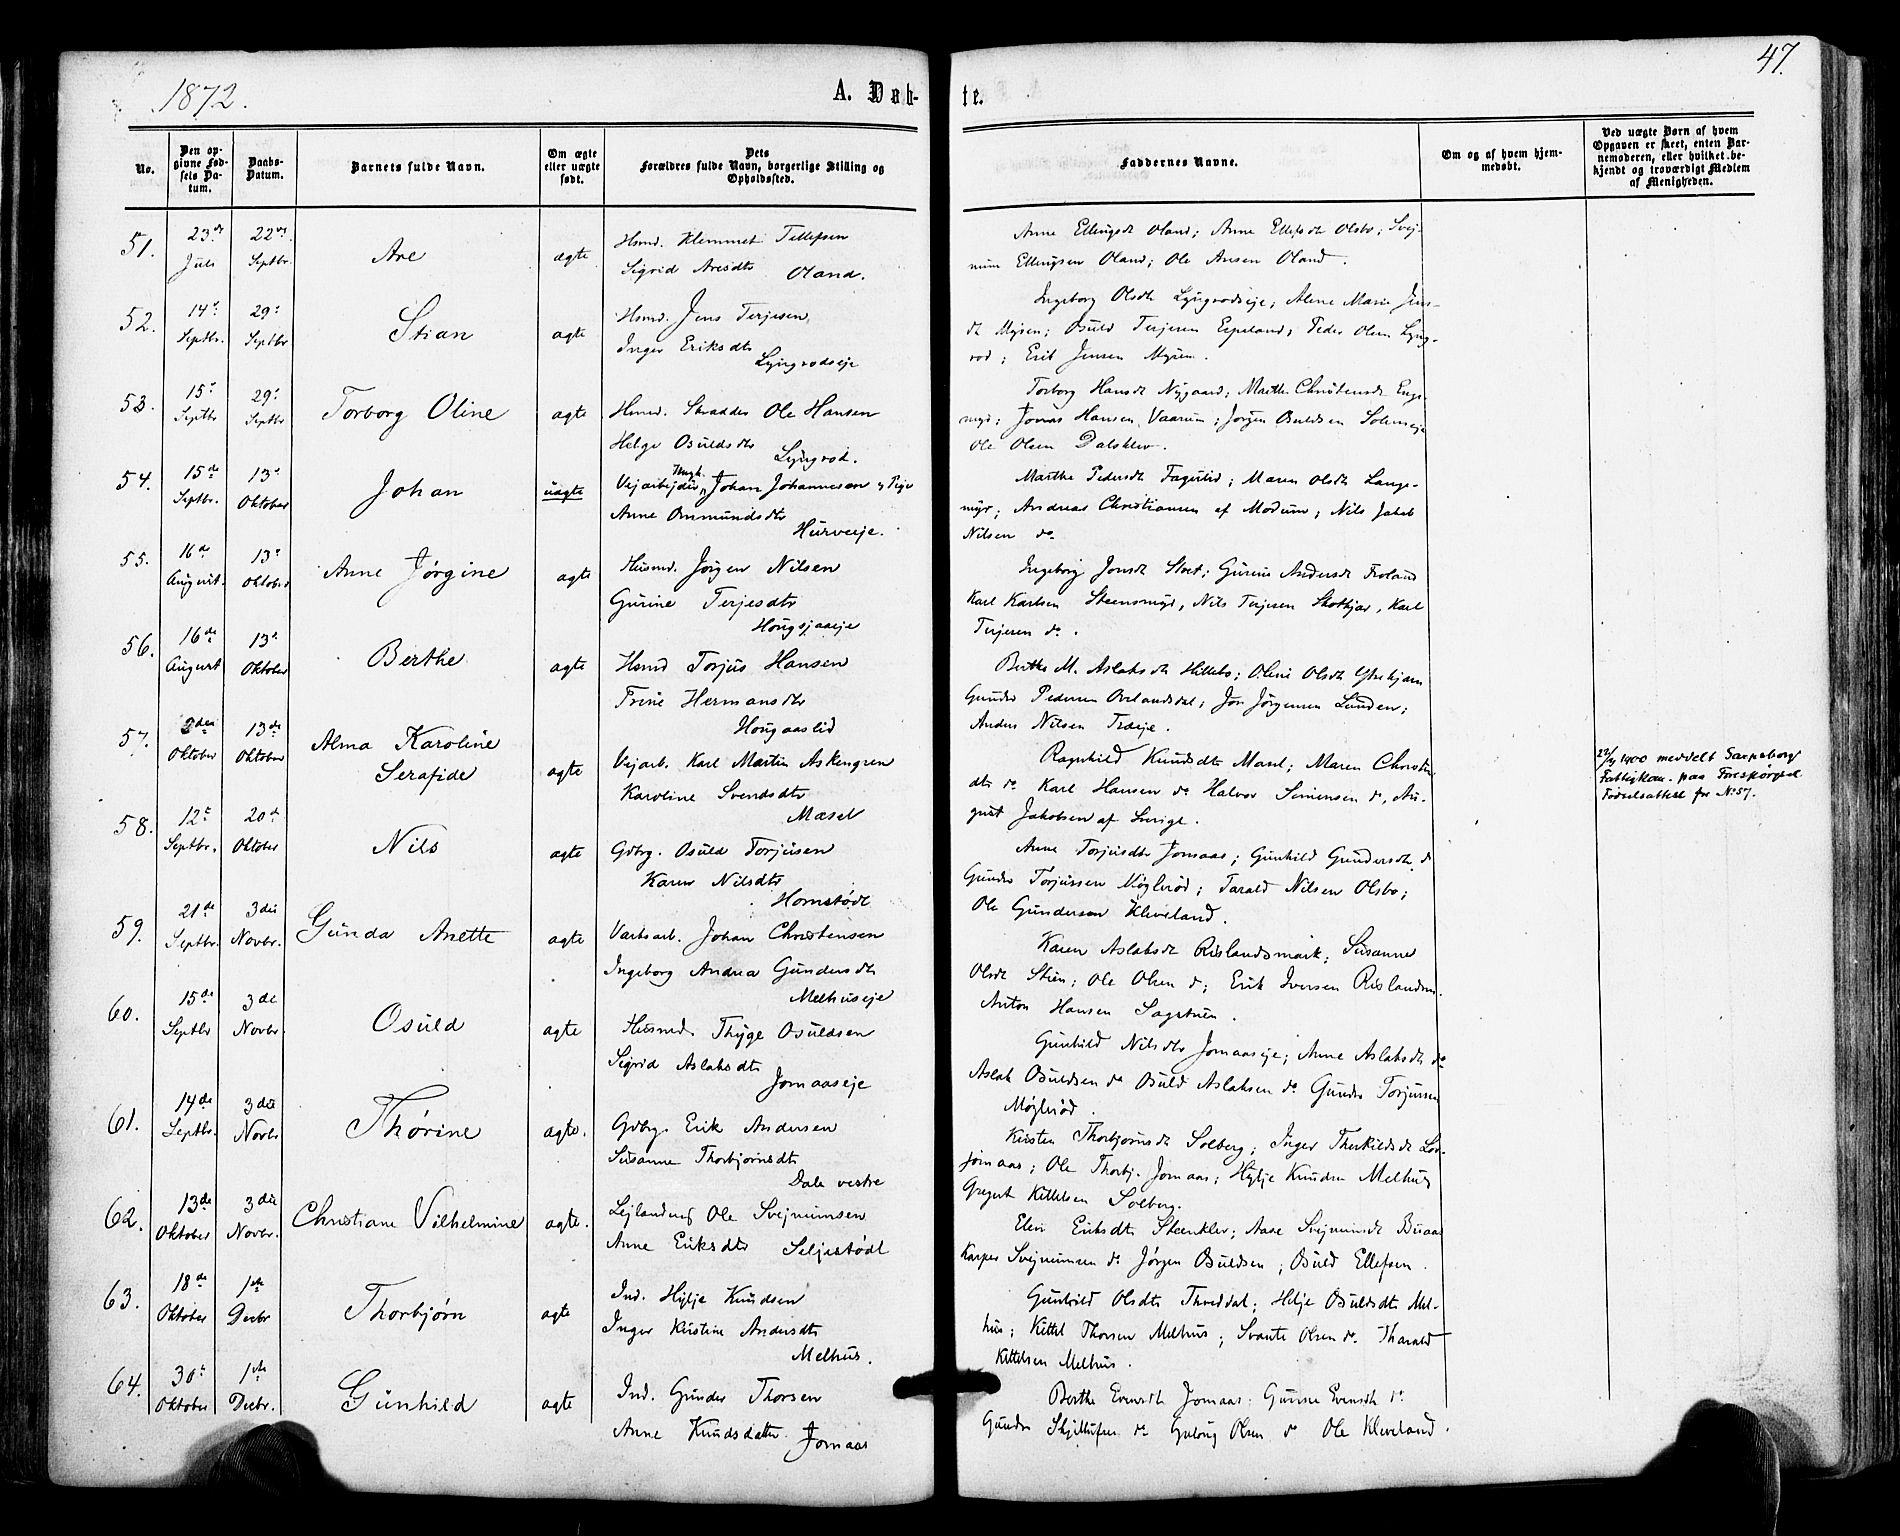 1872.
A. Døb-
te.
47.
No.
Den opgivne Fødsels Datum.
Daabs-Datum.
Barnets fulde Navn.
Om ægte eller uægte født.
Dets Forældres fulde Navn, borgerlige Stilling og Opholdssted.
Faddernes Navne.
Om og af hvem hjemmedøbt.
Ved uægte Børn af hvem Opgaven er skeet, enten Barnemoderen, eller hvilket bekjendt og troværdigt Medlem af Menigheden.
51. 23de Juli 22de Septbr. Are ægte Hsmd. Klemmet Tellefsen
Sigrid Aresdtr Oland.
Anne Ellingsdt Oland; Anne Ellefsdt Olsbo; Svej-
num Ellingsen Oland; Ole Ansen Oland.
52. 14de Septbr. 29de Septbr Stian ægte Hsmd. Jens Terjesen,
Inger Eriksdtr Lyngrodseje
Ingeborg Olsdtr Lyngrodseje; Alene Marie Jens-
dt Myren; Osuld Terjesen Espeland; Peder Olsen Lyng-
rod; Erik Jensen Myren.
53. 15de Septbr 29de Septbr Torborg Oline ægte Hsmd. Skrædder Ole Hansen
Helge Osuldsdtr Lyngrod.
Torborg Hansdt Nygaard; Marthe Christensdt Engemyr; Jonas Hansen Vaarum; Jørgen Osuldsen Solemseje
Ole Olsen Dalsklev.
54. 15de Septbr. 13de Oktober Johan uægte Vejarbejder, Ungk. Johan Johannesen og Pige
Anne Onmundsdtr Hurveeje.
Marthe Pedersdt Fagerlid; Maren Olsdt Lange-
myr; Andreas Christiansen af Modum; Nils Jakob
Nilsen do
55. 16de August. 13de Oktober Anne Jørgine ægte Husmd. Jørgen Nilsen
Gurine Terjesdtr
Hougsjaaeje
Ingeborg Jonsdt Stoet; Gurine Andersdt Froland
Karl Karlsen Steensmyr, Nils Terjesen Skotkjær, Karl
Terjesen do.
56. 16de August 13de Oktober Berthe ægte Hsmd Torjus Hansen
Trine Hermansdtr
Hougaaslid
Berthe M. Aslaksdt Hillebo; Oline Olsdt
Gunder Pedersen Ovelandsdal; Jon Jørgensen Lunden;
Anders Nilsen Træeje.
57. 2den Oktober 13de Oktober Alma Karoline
Serafide ægte Vejarb. Karl Martin Askengren
Karoline Svendsdtr
Mæsel
Ragnhild Knudsdt Masel; Maren Christen
dtr do Karl Hansen do Halvor Simensen do, Au-
gust Jakobsen af Sverige.
22/4 1900 meddelt Sarpsborg
Fattigkom. paa Forespørgsel
Fødselsattest for No 57.
58. 12te Septbr. 20de Oktober Nils ægte Gdbrg. Osuld Torjusen
Karen Nilsdtr
Homstødt
Anne Torjusdtr Jomaas; Gunhild Gundersdtr do
Gunder Torjussen Møglerød; Tarald Nilsen Olsbo;
Ole Gundersen Kleveland.
59. 21de Septbr. 3die Novbr. Gunda Anette ægte Værksarb. Johan Christensen
Ingeborg Andrea Gundersdtr
Melhuseje
Karen Aslaksdt Rislandsmark; Susanne
Olsdt Stien; Ole Olsen do; Erik Iversen Rislandsm.
Anton Hansen Sagstuen.
60. 15de Septbr 3die Novbr. Osuld ægte Husmd. Thyge Osuldsen
Sigrid Aslaksdtr
Jomaaseje
Gunhild Nilsdtr Jomaaseje; Anne Aslaksdtr do
Aslak Osuldsen do Osuld Aslaksen do Gunder Torjussen
Møglerød.
61. 14de Septbr. 3die Novbr Thorine ægte. Gdbrg. Erik Andersen
Susanne Thorbjørnsdtr
Dale vestre
Kirsten Thorbjørnsdt Solberg; Inger Therkildsdt Lon-
jomaas; Ole Thorbj. Jomaas; Hylje Knudsen Melhus
Gregert Kittelsen Solberg.
62. 13de Oktober 3die Novbr. Christiane Vilhelmine ægte. Lejlænding Ole Svejnumsen
Anne Eriksdtr Seljestødt
Elen Eriksdtr Steenklev; Aase Svejnumsdt Buaas
Kasper Svejnumsen do Jørgen Osuldsen; Osuld Ellefsen.
63. 18de Oktober 1ste Decbr Thorbjørn ægte Ind. Hylje Knudsen
Inger Kirstine Andersdtr
Melhus.
Gunhild Olsdtr Thveddal; Helje Osuldsdtr Mel-
hus; Kittel Thorsen Melhus; Svante Olsen do. Tharald
Kittelsen Melhus.
64. 30te Oktober 1ste Decbr. Gunhild ægte Ind. Gunder Thorsen
Anne Knudsdatter Jomaas
Berthe Evensdtr Jomaas; Gurine Evensdtr do
Gunder Olsen do Ole Kleveland.